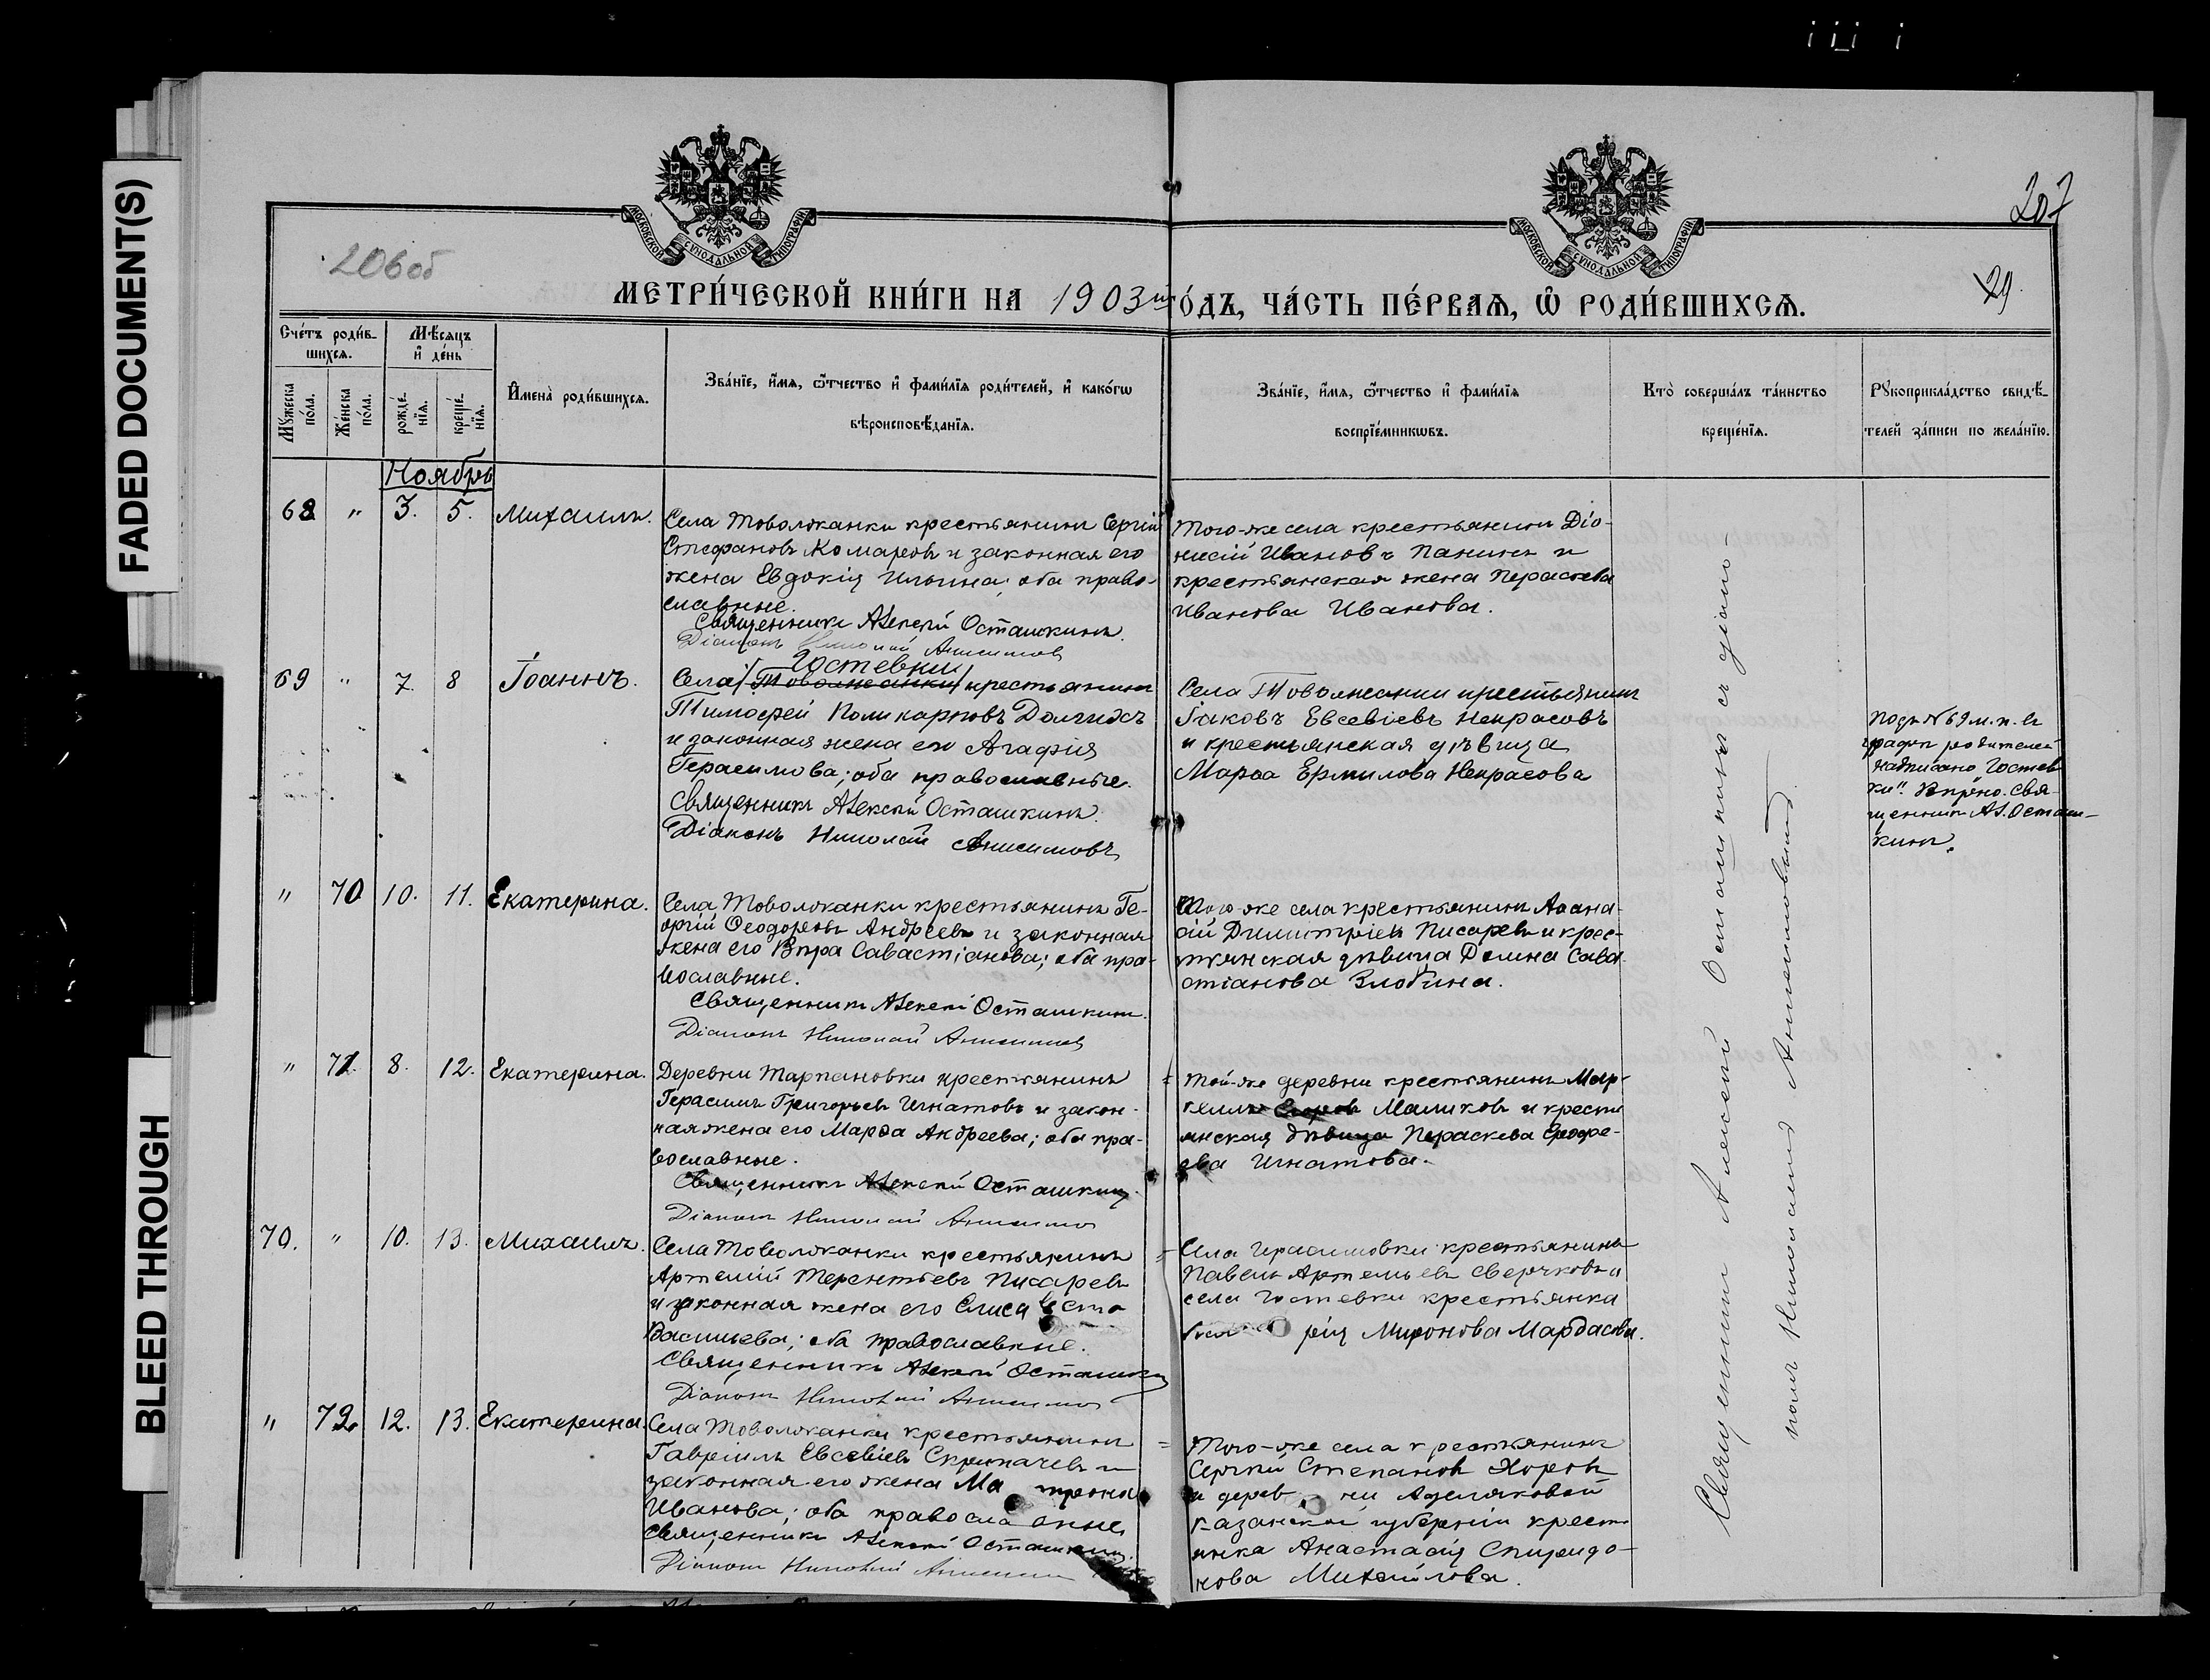 FADED DOCUMENT(S)
BLEED THROUGH
206об
207
29.
МОСКОВСКОЙ СѴНОДАЛЬНОЙ ТИПОГРАФІИ
МОСКОВСКОЙ СѴНОДАЛЬНОЙ ТИПОГРАФІИ
МЕТРИ́ЧЕСКОЙ КНИ́ГИ НА 1903й ГО́ДЪ, ЧА́СТЬ ПЕ́РВАѦ, Ѡ РОДИ́ВШИХСѦ.
Сче́тъ роди́в-
шихсѧ.
Мѣ́сяцъ
и де́нь
Мꙋ́жеска по́ла.
Же́нска по́ла.
рожде́нїѧ.
креще́нїѧ.
Имена̀ роди́вшихсѧ.
Зва́нїе, и́мѧ, ѻ҆́тчество и фами́лїѧ роди́телей, и како́гѡ
вѣроисповѣ́данїѧ.
Зва́нїе, и́мѧ, ѻ҆́тчество и фами́лїѧ
воспрїе́мникѡвъ.
Кто̀ соверша́лъ та́инство
креще́нїѧ.
Рꙋкоприкла́дство свидѣ́-
телей за́писи по жела́нїю.
Ноябрь
68 " 3. 5. Михаилъ.
Села Товолжанки крестьянинъ Сергій
Стефановъ Комаровъ и законная его
жена Евдокія Ильина; оба право-
славные.
Священникъ Алексѣй Осташкинъ.
Діаконъ Николай Анисимовъ
Того-же села крестьянинъ Діо-
нисій Ивановъ Панинъ и
крестьянская жена Параскева
Иванова Иванова.
69 " 7. 8 Іоаннъ.
Гостевки
Села Товолжанки крестьянинъ
Тимоѳей Поликарповъ Долгихъ
и законная жена его Агафія
Герасимова; оба православные.
Священникъ Алексѣй Осташкинъ.
Діаконъ Николай Анисимовъ
Села Товолжанки крестьянинъ
Іаковъ Евсевіевъ Некрасовъ
и крестьянская дѣвица
Марѳа Ермилова Некрасова
Подъ №69 м. п. въ
графѣ родителей
надписано "Гостев
ки". Вѣрно. Свя-
щенникъ Ал. Осташ-
кинъ.
" 70 10. 11. Екатерина.
Села Товолжанки крестьянинъ Ге-
оргій Ѳеодоровъ Андреевъ и законная
жена его Вѣра Савастіанова; оба пра-
вославные.
Священникъ Алексѣй Осташкинъ.
Діаконъ Николай Анисимовъ
Того же села крестьянинъ Аѳана-
сій Димитріевъ Писаревъ и крес-
тьянская дѣвица Домна Сава-
стіанова Злобина.
" 71. 8. 12. Екатерина.
Деревни Тарпановки крестьянинъ
Герасимъ Григорьевъ Игнатовъ и закон-
ная жена его Марѳа Андреева; оба пра-
вославные.
Священникъ Алексѣй Осташкинъ.
Діаконъ Николай Анисимовъ
Той-же деревни крестьянинъ Мар-
Маликовъ и кресть
янская дѣвица Параскева
Игнатова.
70. " 10. 13. Михаилъ.
Села Товолжанки крестьянинъ
Артемій Терентьевъ Писаревъ
и законная жена его Елисавета
Васильева; оба православные.
Священникъ Алексѣй Осташкинъ
Діаконъ Николай Анисимовъ
Села Герасимовки крестьянинъ
Павелъ Артемьевъ Сверчковъ и
села Гостевки крестьянка
Миронова Мардасова.
" 72. 12. 13. Екатерина.
Села Товолжанки крестьянинъ
Гавріилъ Евсевіевъ Скрипачевъ и
законная его жена Матрона
Иванова; оба православные
Священникъ Алексѣй Осташкинъ.
Діаконъ Николай Анисимовъ
Того-же села крестьянинъ
Сергій Степановъ Хоровъ
и деревни
Казанской губерніи кресть
янка Анастасія Спиридо-
нова Михайлова.
Священникъ Алексѣй Осташкинъ съ діако-
номъ Николаемъ Анисимовымъ.